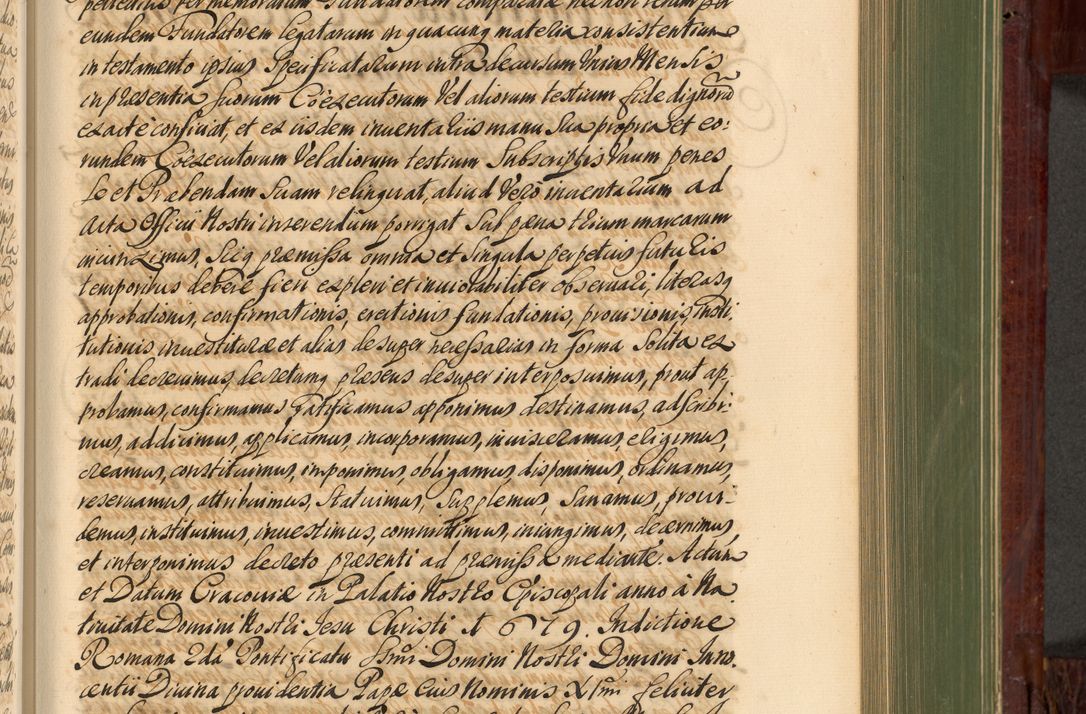 eundem Fundatorem legatarum in quacunq materia consistentium
in testamento ipsius Specificatarum intra decursum Unius Mensis
in præsentia suorum Coexecutorum Vel aliorum testium fide dignorū
exacte conficiat, et ex iisdem inuentariis manu Sua propria et eo:
rundem Coexecutorum Vel aliorum testium Subscriptis Unum penes
Se et Præbendam Suam relinquat, aliud Vero inuentarium ad
Acta Officii Nostri inserendum porrigat Sub pœna trium marcarum
iniunximus, Sicq præmissa omnia et Singula perpetuis futuris
temporibus debere fieri expleri et inuiolabiliter obseruari, literasq
approbationis, confirmationis, erectionis fundationis, prouisionis, Insti
tutionis inuestituræ et alias desuper necessarias in forma Solita ex
tradi decreuimus, decretumq præsens desuper interposuimus, prout ap,
probamus, confirmamus Ratificamus apponimus destinamus, adscribi:
mus, addicimus, applicamus, incorporamus, inuisceramus, eligimus,
creamus, constituimus, imponimus, obligamus, disponimus, ordinamus,
reseruamus, attribuimus, Statuimus, Supplemus, Sanamus, proui-
demus, instituimus, inuestimus, committimus, iniungimus, decernimus,
et interponimus decreto præsenti ad præmissa mediante. Actum
et Datum Cracouiæ in Palatio Nostro Episcopali anno à Na.
tiuitate Domini Nostri Jesu Christi 1679. Indictione
Romana 2da Pontificatu SSmi Domini Nostri Domini Inno.
centii Diuina prouidentia Papæ Eius Nominis XImi feliciter